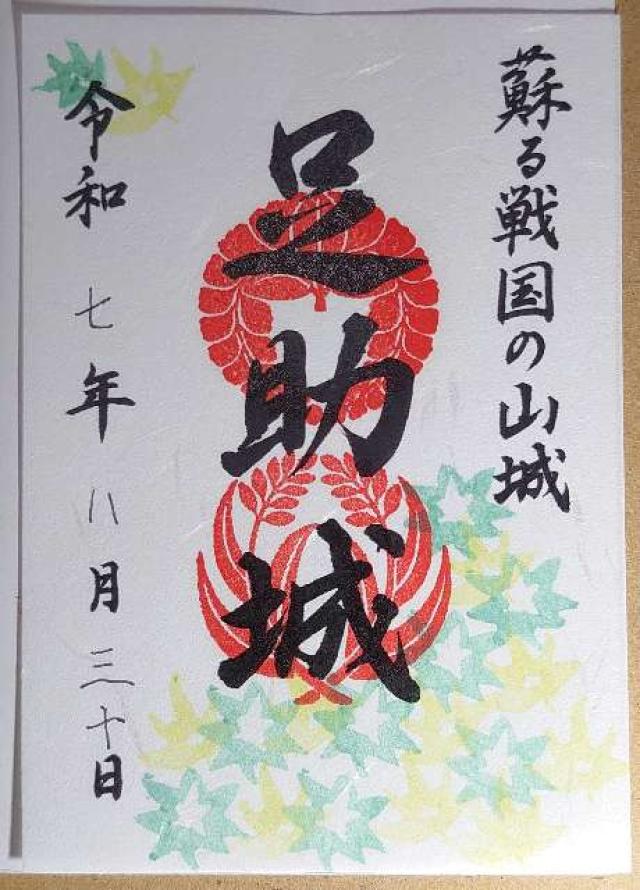 蘇る戦国の山城
足助城
令和七年八月三十日